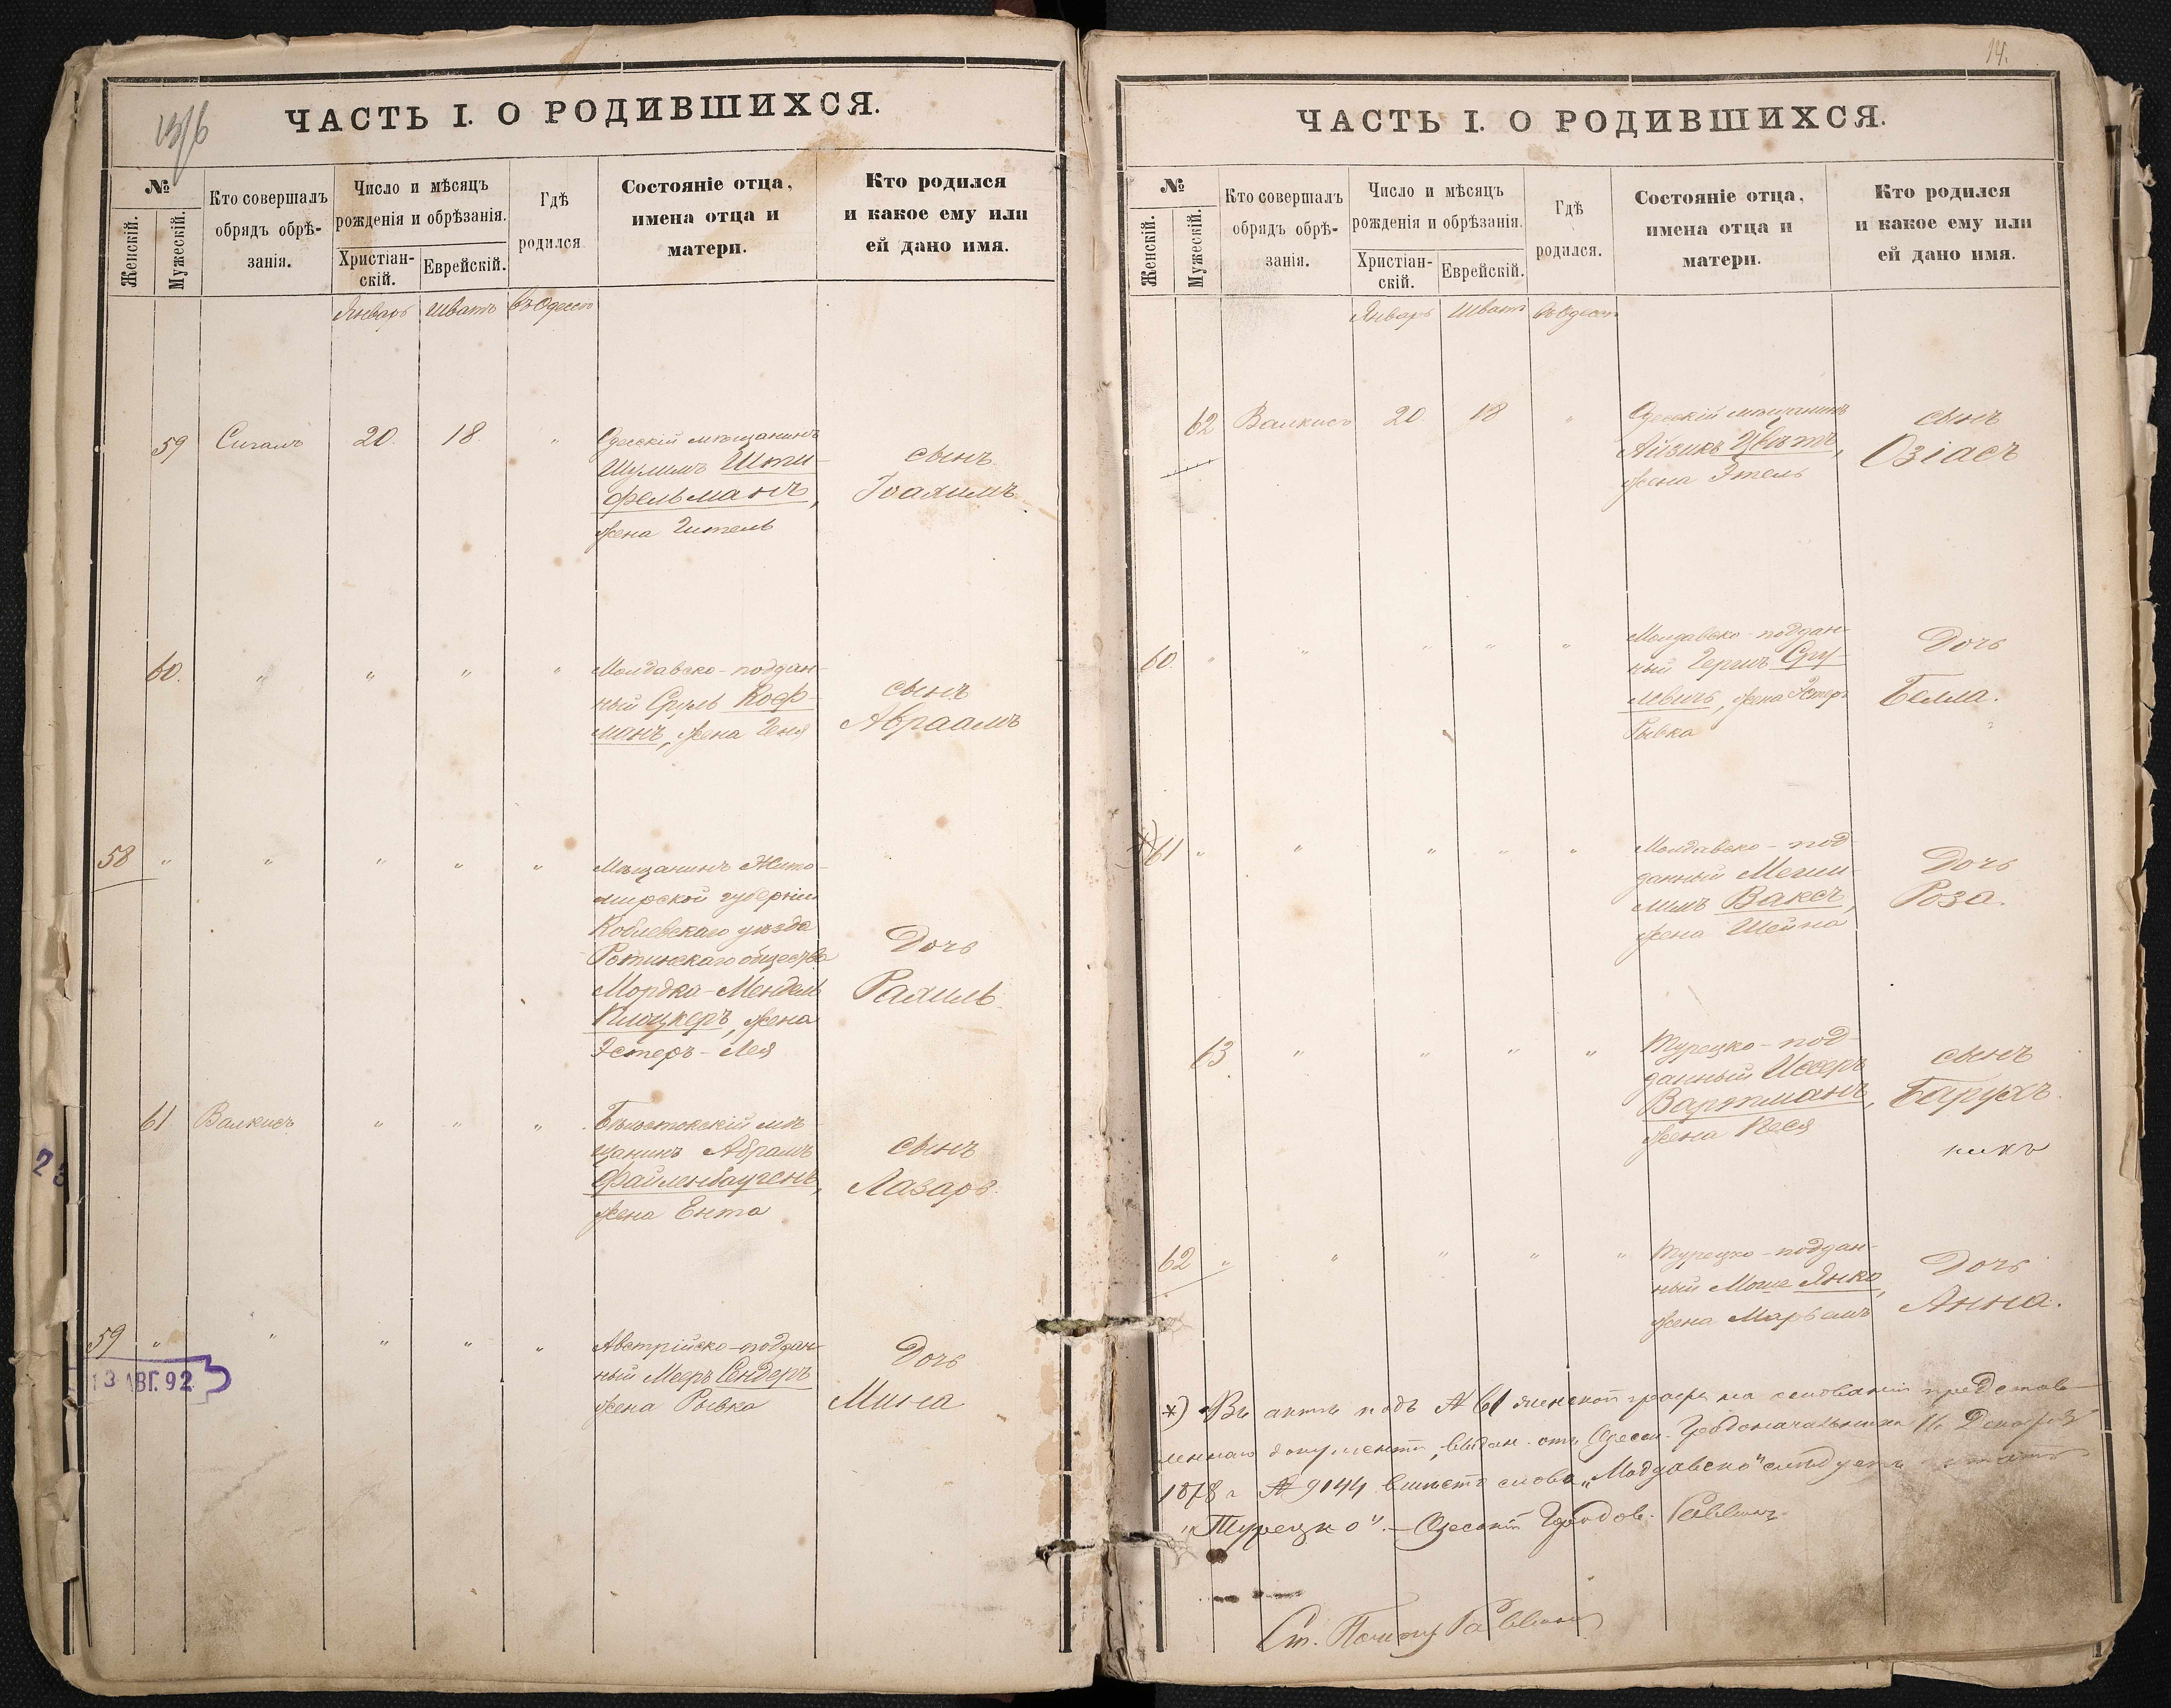 13/б
ЧАСТЬ I. О РОДИВШИХСЯ.
№
Женскій.
Мужескій.
Кто совершалъ
обрядъ обрѣ-
занія.
Число и мѣсяцъ
рожденія и обрѣзанія.
Христіан-
скій.
Еврейскій.
Гдѣ
родился.
Состояніе отца,
имена отца и
матери.
Кто родился
и какое ему или
ей дано имя.
Январь Шватъ въ Одессѣ
59 Сигалъ 20. 18. "
Одесскій мѣщанинъ
Шулимъ Шти-
фельманъ,
жена Гитель
сынъ
Іоахимъ.
60. " " " "
Молдавско-поддан-
ный Сруль Коф-
манъ, жена Геня
сынъ
Авраамъ
58 " " " " "
Мѣщанинъ Жито-
мирской губерніи
уѣзда
общества
Мордко-Мендель
жена
Эстеръ-Лея
Дочь
Рахиль.
61. Валкисъ " " "
Бѣлостокскій мѣ-
щанинъ Абрамъ
Файленбагенъ,
жена Ента
сынъ
Лазарь.
59 " " " " "
13 АВГ. 92
Австрійско-поддан-
ный Мееръ Сендеръ
жена Рывка
Дочь
Мина
23
14.
ЧАСТЬ I. О РОДИВШИХСЯ.
№
Женскій.
Мужескій.
Кто совершалъ
обрядъ обрѣ-
занія.
Число и мѣсяцъ
рожденія и обрѣзанія.
Христіан-
скій.
Еврейскій.
Гдѣ
родился.
Состояніе отца,
имена отца и
матери.
Кто родился
и какое ему или
ей дано имя.
Январь Шватъ въ Одессѣ
62 Валкисъ 20. 18 "
Одесскій мѣщанинъ
Айзикъ Цвѣтъ,
жена Этель
сынъ
Озіасъ
60. " " " " "
Молдавско-поддан-
ный Гершъ Сру-
левичъ, жена Эстеръ
Рывка
Дочь
Белла.
*) 61 " " " " "
Молдавско-под
данный Меши-
лимъ Ваксъ,
жена Шейна
Дочь
Роза.
63 " " " "
Турецко-под-
данный Иссеръ
Вартманъ,
жена Песя
сынъ
Барухъ.
62 " " " " "
Турецко-поддан-
ный Моше Янко,
жена Марьямъ
Дочь
Анна.
*) Въ актѣ подъ № 61 женской графы на основаніи представ-
леннаго документа, выдан. отъ Одесск. Градоначальника 16 Декабря
1878 г. № 9144 вмѣсто слова „Молдавско" слѣдуетъ читать
„Турецко". — Одесскій Городов. Раввинъ.
Ст. Помощ. Раввина